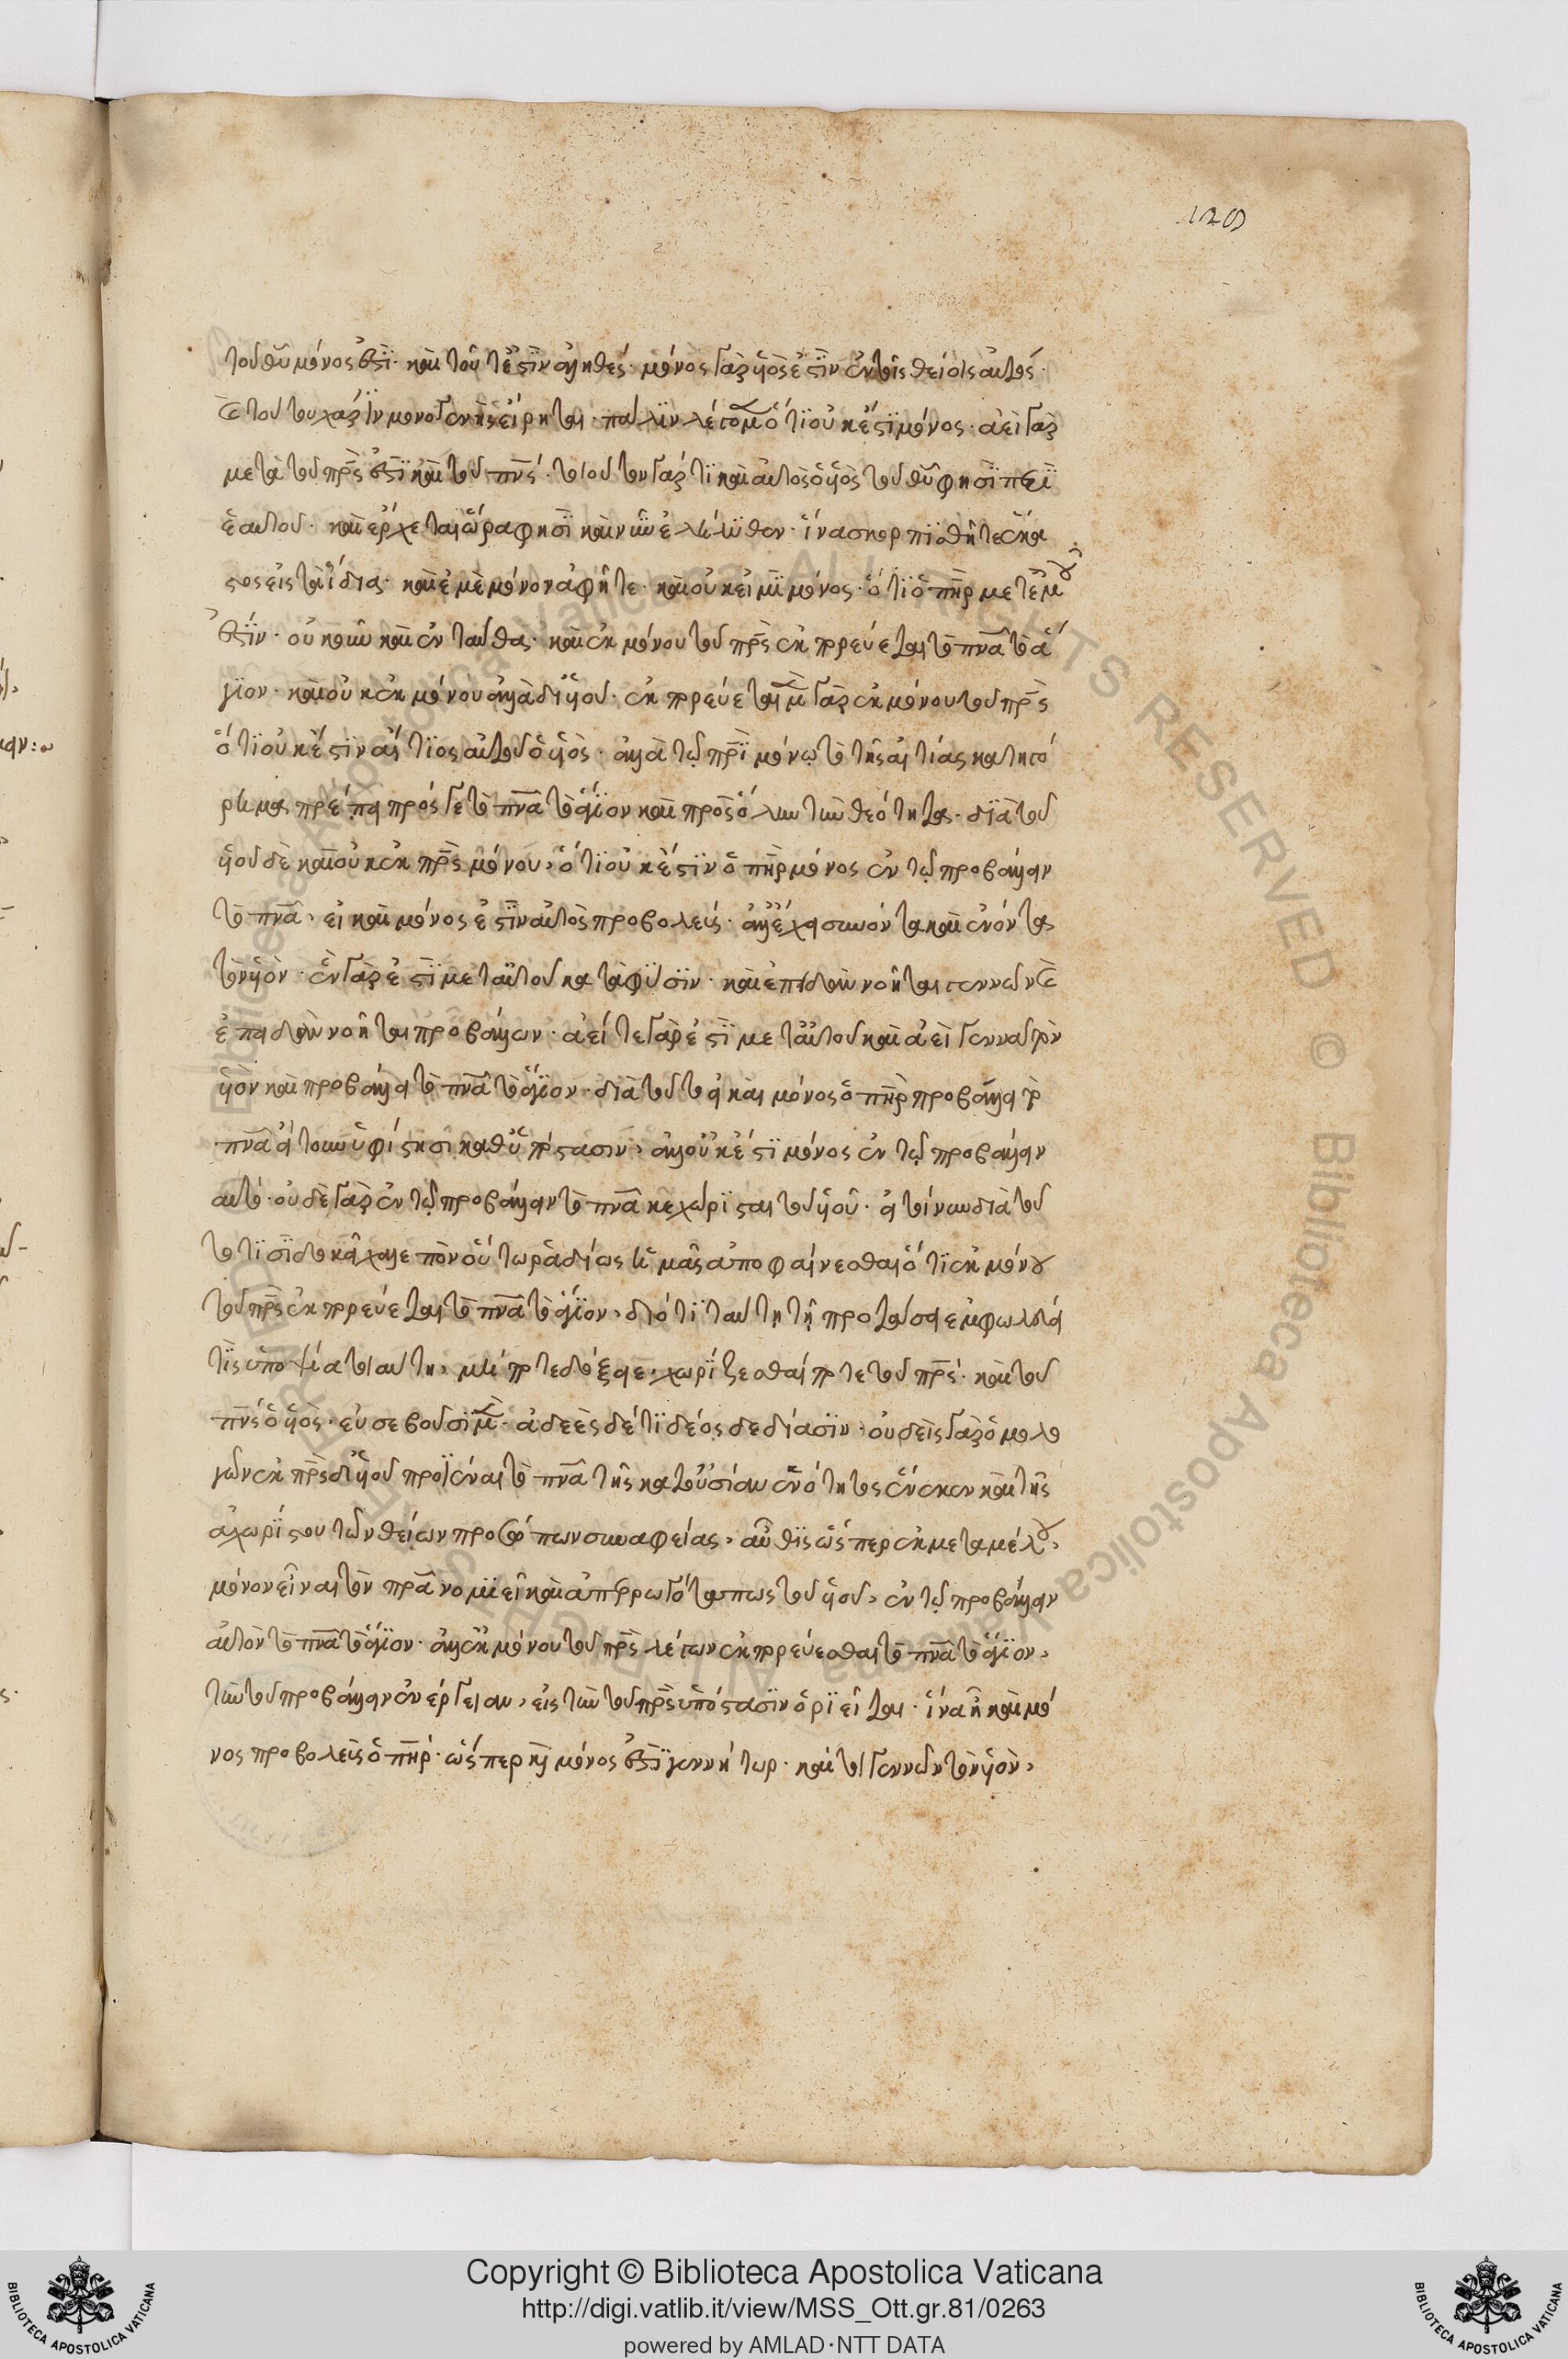 129
τοῦ θῦ μόνος ἐστὶ· καὶ τοῦτ' ἔστιν ἀληθές· μόνος γὰρ υἱός ἐστιν ἐν τοῖς θείοις αὐτός·
καὶ τούτου χάριν μονογενὴς εἴρηται· πάλιν λέγομεν ὅτι οὐκ ἔστι μόνος· ἀεὶ γὰρ
μετὰ τοῦ πρς ἐστὶ καὶ τοῦ πνς· τοιοῦτον γάρ τι καὶ αὐτὸς ὁ υἱὸς τοῦ θῦ φησὶ περὶ
ἑαυτοῦ· καὶ ἔρχεται ὥρα φησὶ καὶ νῦν ἐλήλυθεν· ἵνα σκορπισθῆτε ἕκα
στος εἰς τὰ ἴδια· καὶ ἐμὲ μόνον ἀφῆτε· καὶ οὐκ εἰμὶ μόνος· ὅτι ὁ πηρ μετ' ἐμοῦ
ἐστίν· οὐκοῦν καὶ ἐνταῦθα· καὶ ἐκ μόνου τοῦ πρς ἐκπορεύεται τὸ πνα τὸ ἅ
γιον· καὶ οὐκ ἐκ μόνου ἀλλὰ δι' υἱοῦ· ἐκπορεύεται μὲν γὰρ ἐκ μόνου τοῦ πρς
ὅτι οὐκ ἔστιν αἴτιος αὐτοῦ ὁ υἱός· ἀλλὰ τῷ πρὶ μόνῳ τὸ τῆς αἰτίας κατηγό
ρημα πρέπει πρός γε τὸ πνα τὸ ἅγιον καὶ πρὸς ὅλην τὴν θεότητα· διὰ τοῦ
υἱοῦ δὲ καὶ οὐκ ἐκ πρς μόνου, ὅτι οὐκ ἔστιν ὁ πηρ μόνος ἐν τῷ προβάλλειν
τὸ πνα, εἰ καὶ μόνος ἐστὶν αὐτὸς προβολεύς· ἀλλ' ἔχει συνόντα καὶ ἐνόντα
τὸν υἱόν· ἓν γάρ ἐστι μετ' αὐτοῦ κατὰ φύσιν· καὶ ἐπειδὰν νοῆται γεννῶν καὶ
ἐπειδὰν νοῆται προβάλλων· ἀεί τε γάρ ἐστι μετ' αὐτοῦ καὶ ἀεὶ γεννᾷ τὸν
υἱὸν καὶ προβάλλει τὸ πνα τὸ ἅγιον· διὰ τοῦτο εἰ καὶ μόνος ὁ πηρ προβάλλει τὸ
πνα ἤτοι ὑφίστησι καθ' ὑπόστασιν, ἀλλ' οὐκ ἔστι μόνος ἐν τῷ προβάλλειν
αὐτό· οὐδὲ γὰρ ἐν τῷ προβάλλειν τὸ πνα κεχώρισται τοῦ υἱοῦ· εἰ τοίνυν διὰ τοῦ
το τισὶ δοκεῖ χαλεπὸν οὕτω ῥαδίως ἡμᾶς ἀποφαίνεσθαι ὅτι ἐκ μόνου
τοῦ πρς ἐκπορεύεται τὸ πνα τὸ ἅγιον, διότι ταύτῃ τῇ προτάσει ἐμφωλεύει
τις ὑποψία τοιαύτη, μήποτε δόξειε χωρίζεσθαί ποτε τοῦ πρς· καὶ τοῦ
πνς ὁ υἱός· εὐσεβοῦσι μὲν· ἀδεὲς δέ τι δέος δεδίασιν· οὐδεὶς γὰρ ὁμολο
γῶν ἐκ πρς δι' υἱοῦ προϊέναι τὸ πνα τῆς κατ' οὐσίαν ἑνότητος ἕνεκεν καὶ τῆς
ἀχωρίστου τῶν θείων προσώπων συναφείας, αὖθις ὥσπερ ἐκ μεταμέλου,
μόνον εἶναι τὸν πρα νομιεῖ καὶ ἀπερρωγότα πως τοῦ υἱοῦ, ἐν τῷ προβάλλειν
αὐτὸν τὸ πνα τὸ ἅγιον· ἀλλ' ἐκ μόνου τοῦ πρς λέγων ἐκπορεύεσθαι τὸ πνα τὸ ἅγιον,
τὴν τοῦ προβάλλειν ἐνέργειαν, εἰς τὴν τοῦ πρς ὑπόστασιν ὁριεῖται· ἵνα ᾖ καὶ μό
νος προβολεὺς ὁ πηρ· ὥσπερ καὶ μόνος ἐστὶ γεννήτωρ· καί τοι γεννῶν τὸν υἱόν,
Copyright © Biblioteca Apostolica Vaticana
http://digi.vatlib.it/view/MSS_Ott.gr.81/0263
powered by AMLAD·NTT DATA